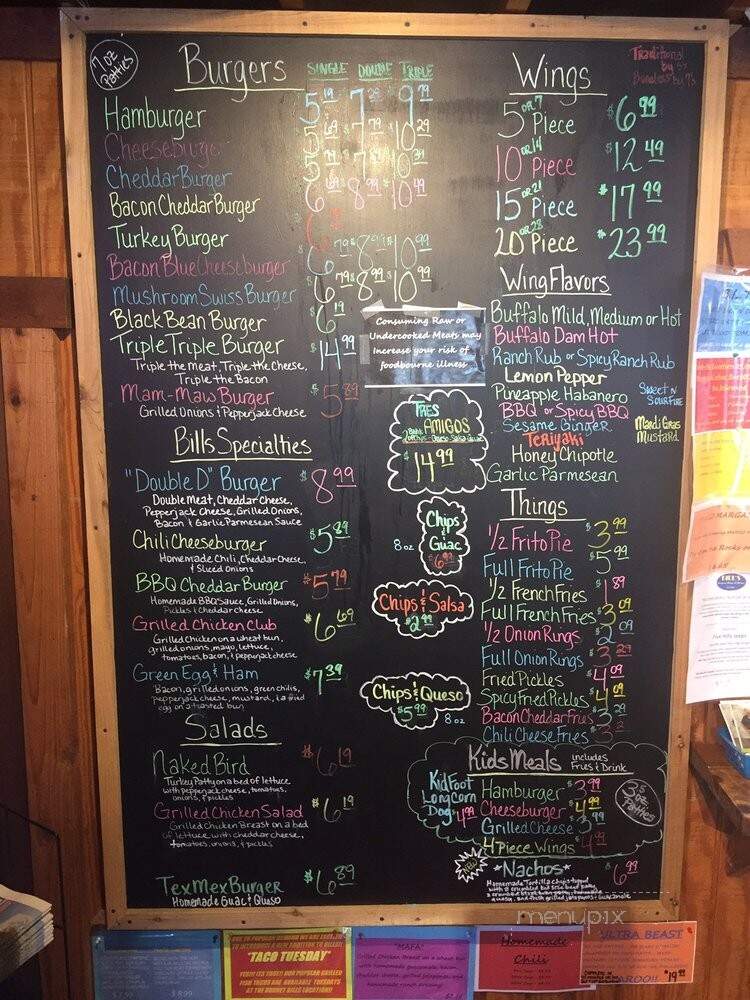 7 oz Patties
Burgers SINGLE DOUBLE TRIPLE
Hamburger
Cheeseburger
Cheddar Burger
Bacon Cheddar Burger
Turkey Burger
Bacon Blue Cheese burger
Mushroom Swiss Burger
Black Bean Burger
Triple Triple Burger $14.99
Triple the Meat, Triple the Cheese,
Triple the Bacon
Mam-Maws Burger $5.89
Grilled Onions & Pepperjack Cheese
Bills Specialties
"Double D" Burger $8.99
Double Meat, Cheddar Cheese,
Pepperjack Cheese, Grilled Onions,
Bacon & Garlic Parmesean Sauce
Chili Cheeseburger $5.89
Homemade Chili, Cheddar Cheese,
& Sliced Onions
BBQ Cheddar Burger $5.79
Homemade BBQ Sauce, Grilled Onions,
Pickles & Cheddar Cheese
Grilled Chicken Club $6.69
Grilled Chicken on a wheat bun,
grilled onions, mayo, lettuce,
tomatoes, bacon, & pepperjack cheese
Green Egg & Ham $7.39
Bacon, grilled onions, green chilis,
pepperjack cheese, mustard, & a fried
egg on a toasted bun
Salads
Naked Bird $6.19
Turkey Patty on a bed of lettuce
with pepperjack cheese, tomatoes,
onions, & pickles
Grilled Chicken Salad $6.19
Grilled Chicken Breast on a bed
of lettuce with cheddar cheese,
tomatoes, onions, & pickles
TexMex Burger $6.89
Homemade Guac & Queso
Consuming Raw or
Undercooked Meats may
Increase your risk of
foodbourne illness
TRES
AMIGOS
$14.99
Chips
&
Guac
8 oz
Chips & Salsa
$2.99
Chips & Queso
$5.99
8 oz
Wings
Traditional
by 5's
Boneless by 7's
5 or 7 Piece $6.99
10 or 14 Piece $12.49
15 or 21 Piece $17.99
20 or 28 Piece $23.99
Wing Flavors
Buffalo Mild, Medium or Hot
Buffalo Dam Hot
Ranch Rub or Spicy Ranch Rub
Lemon Pepper
Pineapple Habanero
Sweet N
Sour Fire
BBQ or Spicy BBQ
Sesame Ginger
Mardi Gras
Mustard
Teriyaki
Honey Chipotle
Garlic Parmesean
Things
1/2 Frito Pie $3.99
Full Frito Pie $5.99
1/2 French Fries $1.89
Full French Fries $3.09
1/2 Onion Rings $2.09
Full Onion Rings $3.29
Fried Pickles $4.09
Spicy Fried Pickles $4.09
Bacon Cheddar Fries $3.29
Chili Cheese Fries
Kids Meals includes
Fries & Drink
Kid Foot
Long Corn
Dog $4.99
Hamburger $3.99
Cheeseburger $4.99
Grilled Cheese $3.99
4 Piece Wings $4.99
3.5 oz Patties
*Nachos* $6.99
menupix
"TACO TUESDAY"
"MAFA"
Homemade
Chili
ULTRA BEAST
$19.99